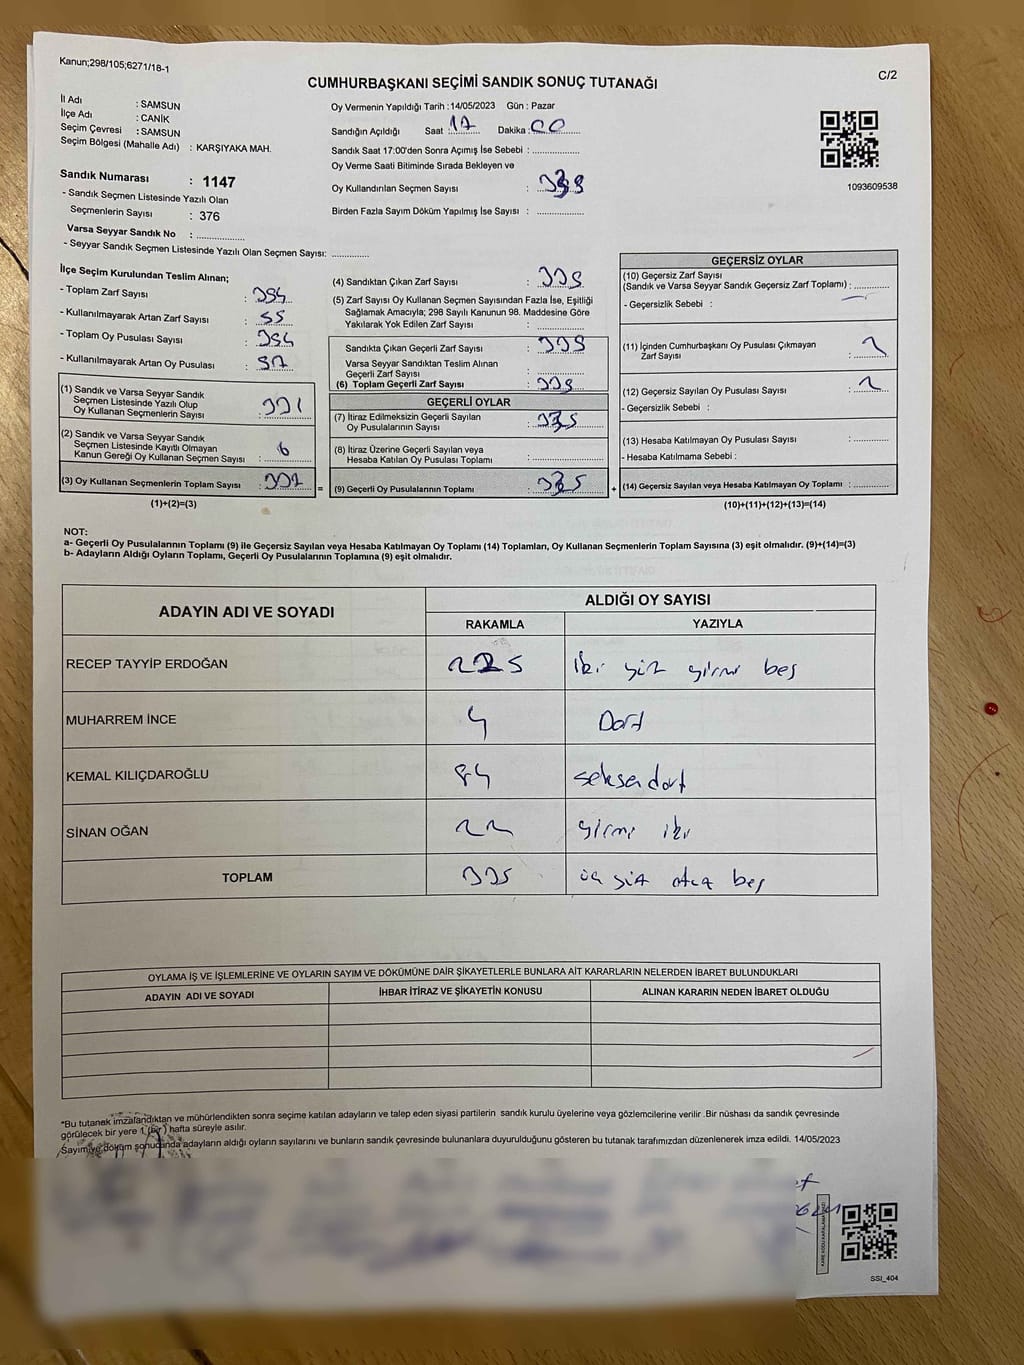 Kanun;298/105;6271/18-1
C/2
CUMHURBAŞKANI SEÇİMİ SANDIK SONUÇ TUTANAĞI
İl Adı : SAMSUN
İlçe Adı : CANİK
Seçim Çevresi : SAMSUN
Seçim Bölgesi (Mahalle Adı) : KARŞIYAKA MAH.
Sandık Numarası : 1147
- Sandık Seçmen Listesinde Yazılı Olan
Seçmenlerin Sayısı : 376
Varsa Seyyar Sandık No : ..................
- Seyyar Sandık Seçmen Listesinde Yazılı Olan Seçmen Sayısı: ..............
Oy Vermenin Yapıldığı Tarih :14/05/2023 Gün : Pazar
Sandığın Açıldığı Saat : 17 Dakika : 00
Sandık Saat 17:00'den Sonra Açımış İse Sebebi : ..................
Oy Verme Saati Bitiminde Sırada Bekleyen ve
Oy Kullandırılan Seçmen Sayısı :
Birden Fazla Sayım Döküm Yapılmış İse Sayısı : ..................
1093609538
İlçe Seçim Kurulundan Teslim Alınan;
- Toplam Zarf Sayısı : 394
- Kullanılmayarak Artan Zarf Sayısı : 55
- Toplam Oy Pusulası Sayısı : 394
- Kullanılmayarak Artan Oy Pusulası : 57
(1) Sandık ve Varsa Seyyar Sandık
Seçmen Listesinde Yazılı Olup
Oy Kullanan Seçmenlerin Sayısı : 331
(2) Sandık ve Varsa Seyyar Sandık
Seçmen Listesinde Kayıtlı Olmayan
Kanun Gereği Oy Kullanan Seçmen Sayısı : 6
(3) Oy Kullanan Seçmenlerin Toplam Sayısı : 337
(1)+(2)=(3)
(4) Sandıktan Çıkan Zarf Sayısı :
(5) Zarf Sayısı Oy Kullanan Seçmen Sayısından Fazla İse, Eşitliği
Sağlamak Amacıyla; 298 Sayılı Kanunun 98. Maddesine Göre
Yakılarak Yok Edilen Zarf Sayısı : ..................
Sandıkta Çıkan Geçerli Zarf Sayısı :
Varsa Seyyar Sandıktan Teslim Alınan
Geçerli Zarf Sayısı : ..................
(6) Toplam Geçerli Zarf Sayısı :
GEÇERLİ OYLAR
(7) İtiraz Edilmeksizin Geçerli Sayılan
Oy Pusulalarının Sayısı : 335
(8) İtiraz Üzerine Geçerli Sayılan veya
Hesaba Katılan Oy Pusulası Toplamı : ..................
= (9) Geçerli Oy Pusulalarının Toplamı : 335 +
GEÇERSİZ OYLAR
(10) Geçersiz Zarf Sayısı
(Sandık ve Varsa Seyyar Sandık Geçersiz Zarf Toplamı) : ............
- Geçersizlik Sebebi :
(11) İçinden Cumhurbaşkanı Oy Pusulası Çıkmayan
Zarf Sayısı : 2
(12) Geçersiz Sayılan Oy Pusulası Sayısı : 2
- Geçersizlik Sebebi :
(13) Hesaba Katılmayan Oy Pusulası Sayısı : ............
- Hesaba Katılmama Sebebi :
(14) Geçersiz Sayılan veya Hesaba Katılmayan Oy Toplamı : ............
(10)+(11)+(12)+(13)=(14)
NOT:
a- Geçerli Oy Pusulalarının Toplamı (9) ile Geçersiz Sayılan veya Hesaba Katılmayan Oy Toplamı (14) Toplamları, Oy Kullanan Seçmenlerin Toplam Sayısına (3) eşit olmalıdır. (9)+(14)=(3)
b- Adayların Aldığı Oyların Toplamı, Geçerli Oy Pusulalarının Toplamına (9) eşit olmalıdır.
ADAYIN ADI VE SOYADI
ALDIĞI OY SAYISI
RAKAMLA YAZIYLA
RECEP TAYYİP ERDOĞAN 225 iki yüz yirmi beş
MUHARREM İNCE 4 Dört
KEMAL KILIÇDAROĞLU 84 seksendört
SİNAN OĞAN 22 yirmi iki
TOPLAM 335 üç yüz otuz beş
OYLAMA İŞ VE İŞLEMLERİNE VE OYLARIN SAYIM VE DÖKÜMÜNE DAİR ŞİKAYETLERLE BUNLARA AİT KARARLARIN NELERDEN İBARET BULUNDUKLARI
ADAYIN ADI VE SOYADI İHBAR İTİRAZ VE ŞİKAYETİN KONUSU ALINAN KARARIN NEDEN İBARET OLDUĞU
*Bu tutanak imzalandıktan ve mühürlendikten sonra seçime katılan adayların ve talep eden siyasi partilerin sandık kurulu üyelerine veya gözlemcilerine verilir .Bir nüshası da sandık çevresinde
görülecek bir yere 1 (bir) hafta süreyle asılır.
Sayım ve döküm sonucunda adayların aldığı oyların sayılarını ve bunların sandık çevresinde bulunanlara duyurulduğunu gösteren bu tutanak tarafımızdan düzenlenerek imza edildi. 14/05/2023
SSI_404